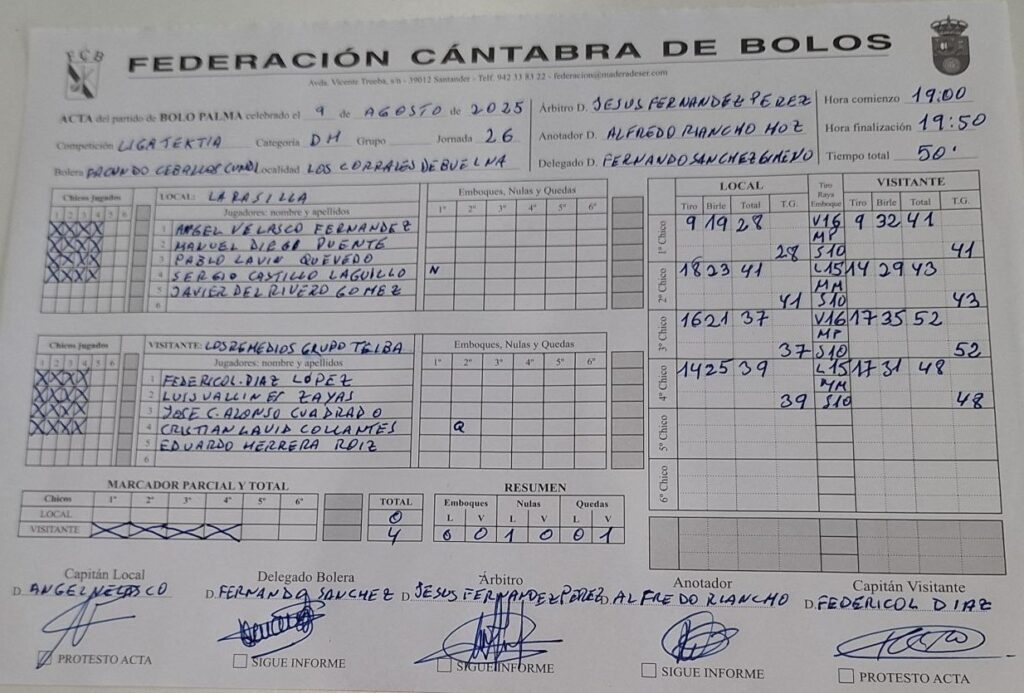 FCB
FEDERACIÓN CÁNTABRA DE BOLOS
Avda. Vicente Trueba, s/n - 39012 Santander - Telf. 942 33 83 22 - federacion@maderadeser.com
ACTA del partido de BOLO PALMA celebrado el 9 de AGOSTO de 2025
Competición LIGA TEKTIA Categoría DH Grupo Jornada 26
Bolera FACUNDO CEBALLOS Localidad LOS CORRALES DE BUELNA
Árbitro D. JESUS FERNANDEZ PEREZ
Anotador D. ALFREDO RIANCHO HOZ
Delegado D. FERNANDO SANCHEZ GIMENO
Hora comienzo 19:00
Hora finalización 19:50
Tiempo total 50'
Chicos jugados
1 2 3 4 5 6
LOCAL: LA RASILLA
Jugadores: nombre y apellidos
Emboques, Nulas y Quedas
1º 2º 3º 4º 5º 6º
1 ANGEL VELASCO FERNANDEZ
2 MANUEL DIEGO PUENTE
3 PABLO LAVIN QUEVEDO
4 SERGIO CASTILLO LAGUILLO N
5 JAVIER DEL RIVERO GOMEZ
6
Chicos jugados
1 2 3 4 5 6
VISITANTE: LOS REMEDIOS GRUPO TELBA
Jugadores: nombre y apellidos
Emboques, Nulas y Quedas
1º 2º 3º 4º 5º 6º
1 FEDERICO L. DIAZ LÓPEZ
2 LUIS VALLINES ZAYAS
3 JOSE C. ALONSO CUADRADO
4 CRISTIAN LAVID COLLANTES Q
5 EDUARDO HERRERA ROIZ
6
LOCAL Tiro Raya Emboque VISITANTE
Tiro Birle Total T.G. Tiro Birle Total T.G.
1º Chico 9 19 28 V16 9 32 41
MP
28 S10 41
2º Chico 18 23 41 L15 14 29 43
MM
41 S10 43
3º Chico 16 21 37 V16 17 35 52
MP
37 S10 52
4º Chico 14 25 39 L15 17 31 48
MM
39 S10 48
5º Chico
6º Chico
MARCADOR PARCIAL Y TOTAL
Chicos 1º 2º 3º 4º 5º 6º TOTAL
LOCAL 0
VISITANTE X X X X 4
RESUMEN
Emboques Nulas Quedas
L V L V L V
0 0 1 0 0 1
Capitán Local
D. ANGEL VELASCO
PROTESTO ACTA
Delegado Bolera
D. FERNANDO SANCHEZ
SIGUE INFORME
Árbitro
D. JESUS FERNANDEZ PEREZ
SIGUE INFORME
Anotador
D. ALFREDO RIANCHO
SIGUE INFORME
Capitán Visitante
D. FEDERICO L DIAZ
PROTESTO ACTA